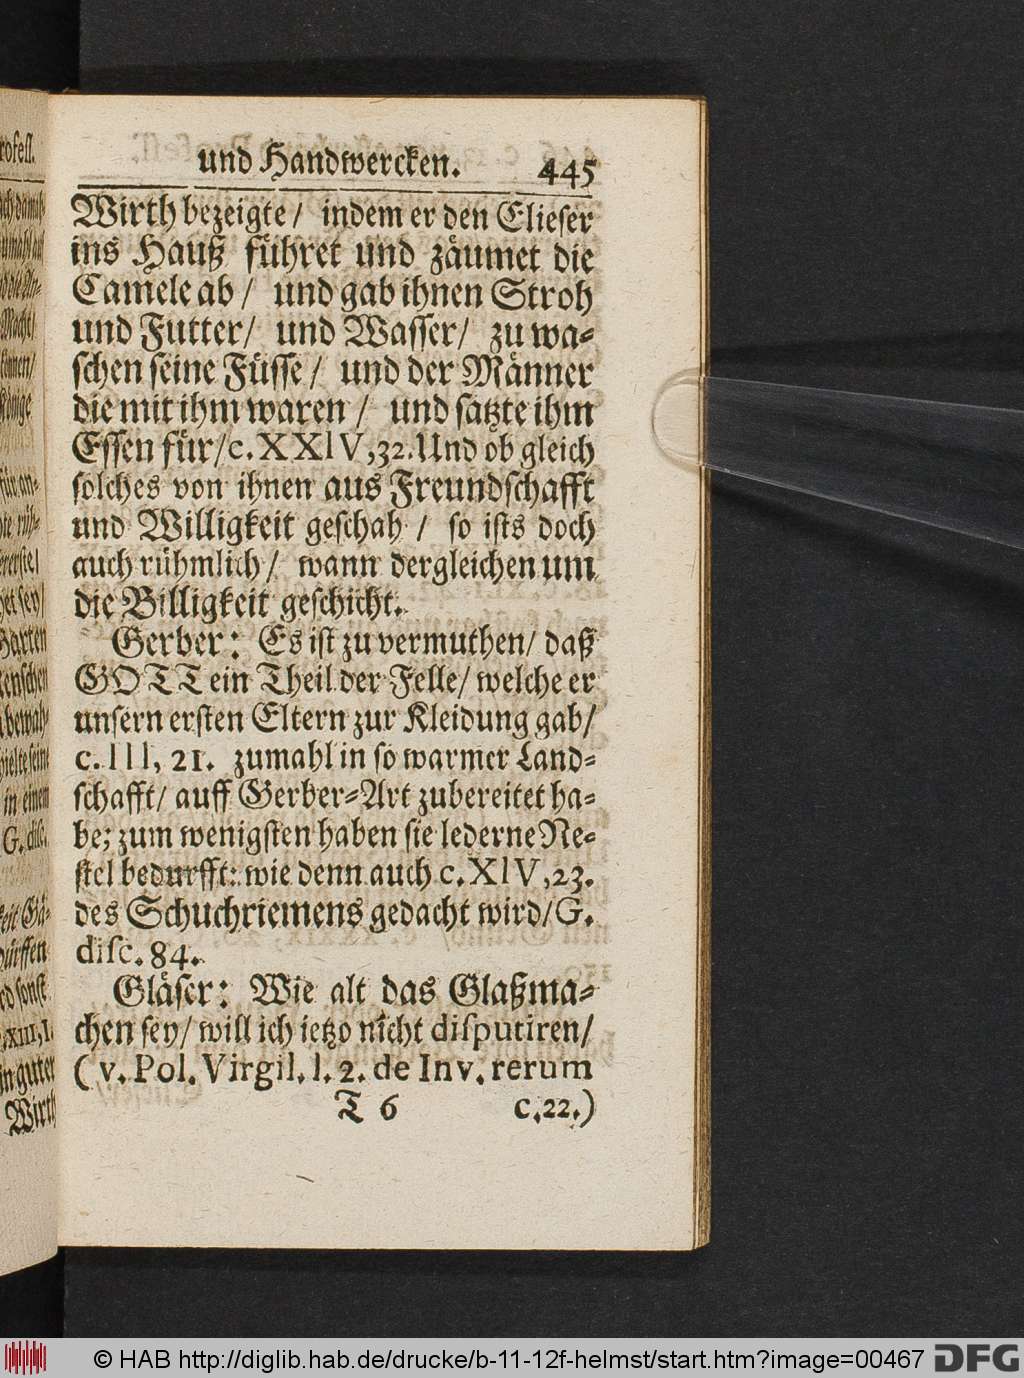 und Handwercken. 445
Wirth bezeigte/ indem er den Elieser
ins Hauß führet und zäumet die
Camele ab/ und gab ihnen Stroh
und Futter/ und Wasser/ zu wa-
schen seine Füsse/ und der Männer
die mit ihm waren/ und satzte ihm
Essen für/ c. XXIV, 32. Und ob gleich
solches von ihnen aus Freundschafft
und Willigkeit geschah/ so ists doch
auch rühmlich/ wann dergleichen um
die Billigkeit geschicht.
Gerber: Es ist zu vermuthen/ daß
GOTT ein Theil der Felle/ welche er
unsern ersten Eltern zur Kleidung gab/
c. III, 21. zumahl in so warmer Land-
schafft/ auff Gerber-Art zubereitet ha-
be; zum wenigsten haben sie lederne Ne-
stel bedurfft: wie denn auch c. XIV, 23.
des Schuchriemens gedacht wird/ G.
disc. 84.
Gläser: Wie alt das Glaßma-
chen sey/ will ich ietzo nicht disputiren/
(v. Pol. Virgil. l. 2. de Inv. rerum
T 6 c. 22.)
rofess.
in einem
G. disc.
dürffen
XIII, 1.
in guter
Wirth
© HAB http://diglib.hab.de/drucke/b-11-12f-helmst/start.htm?image=00467 DFG